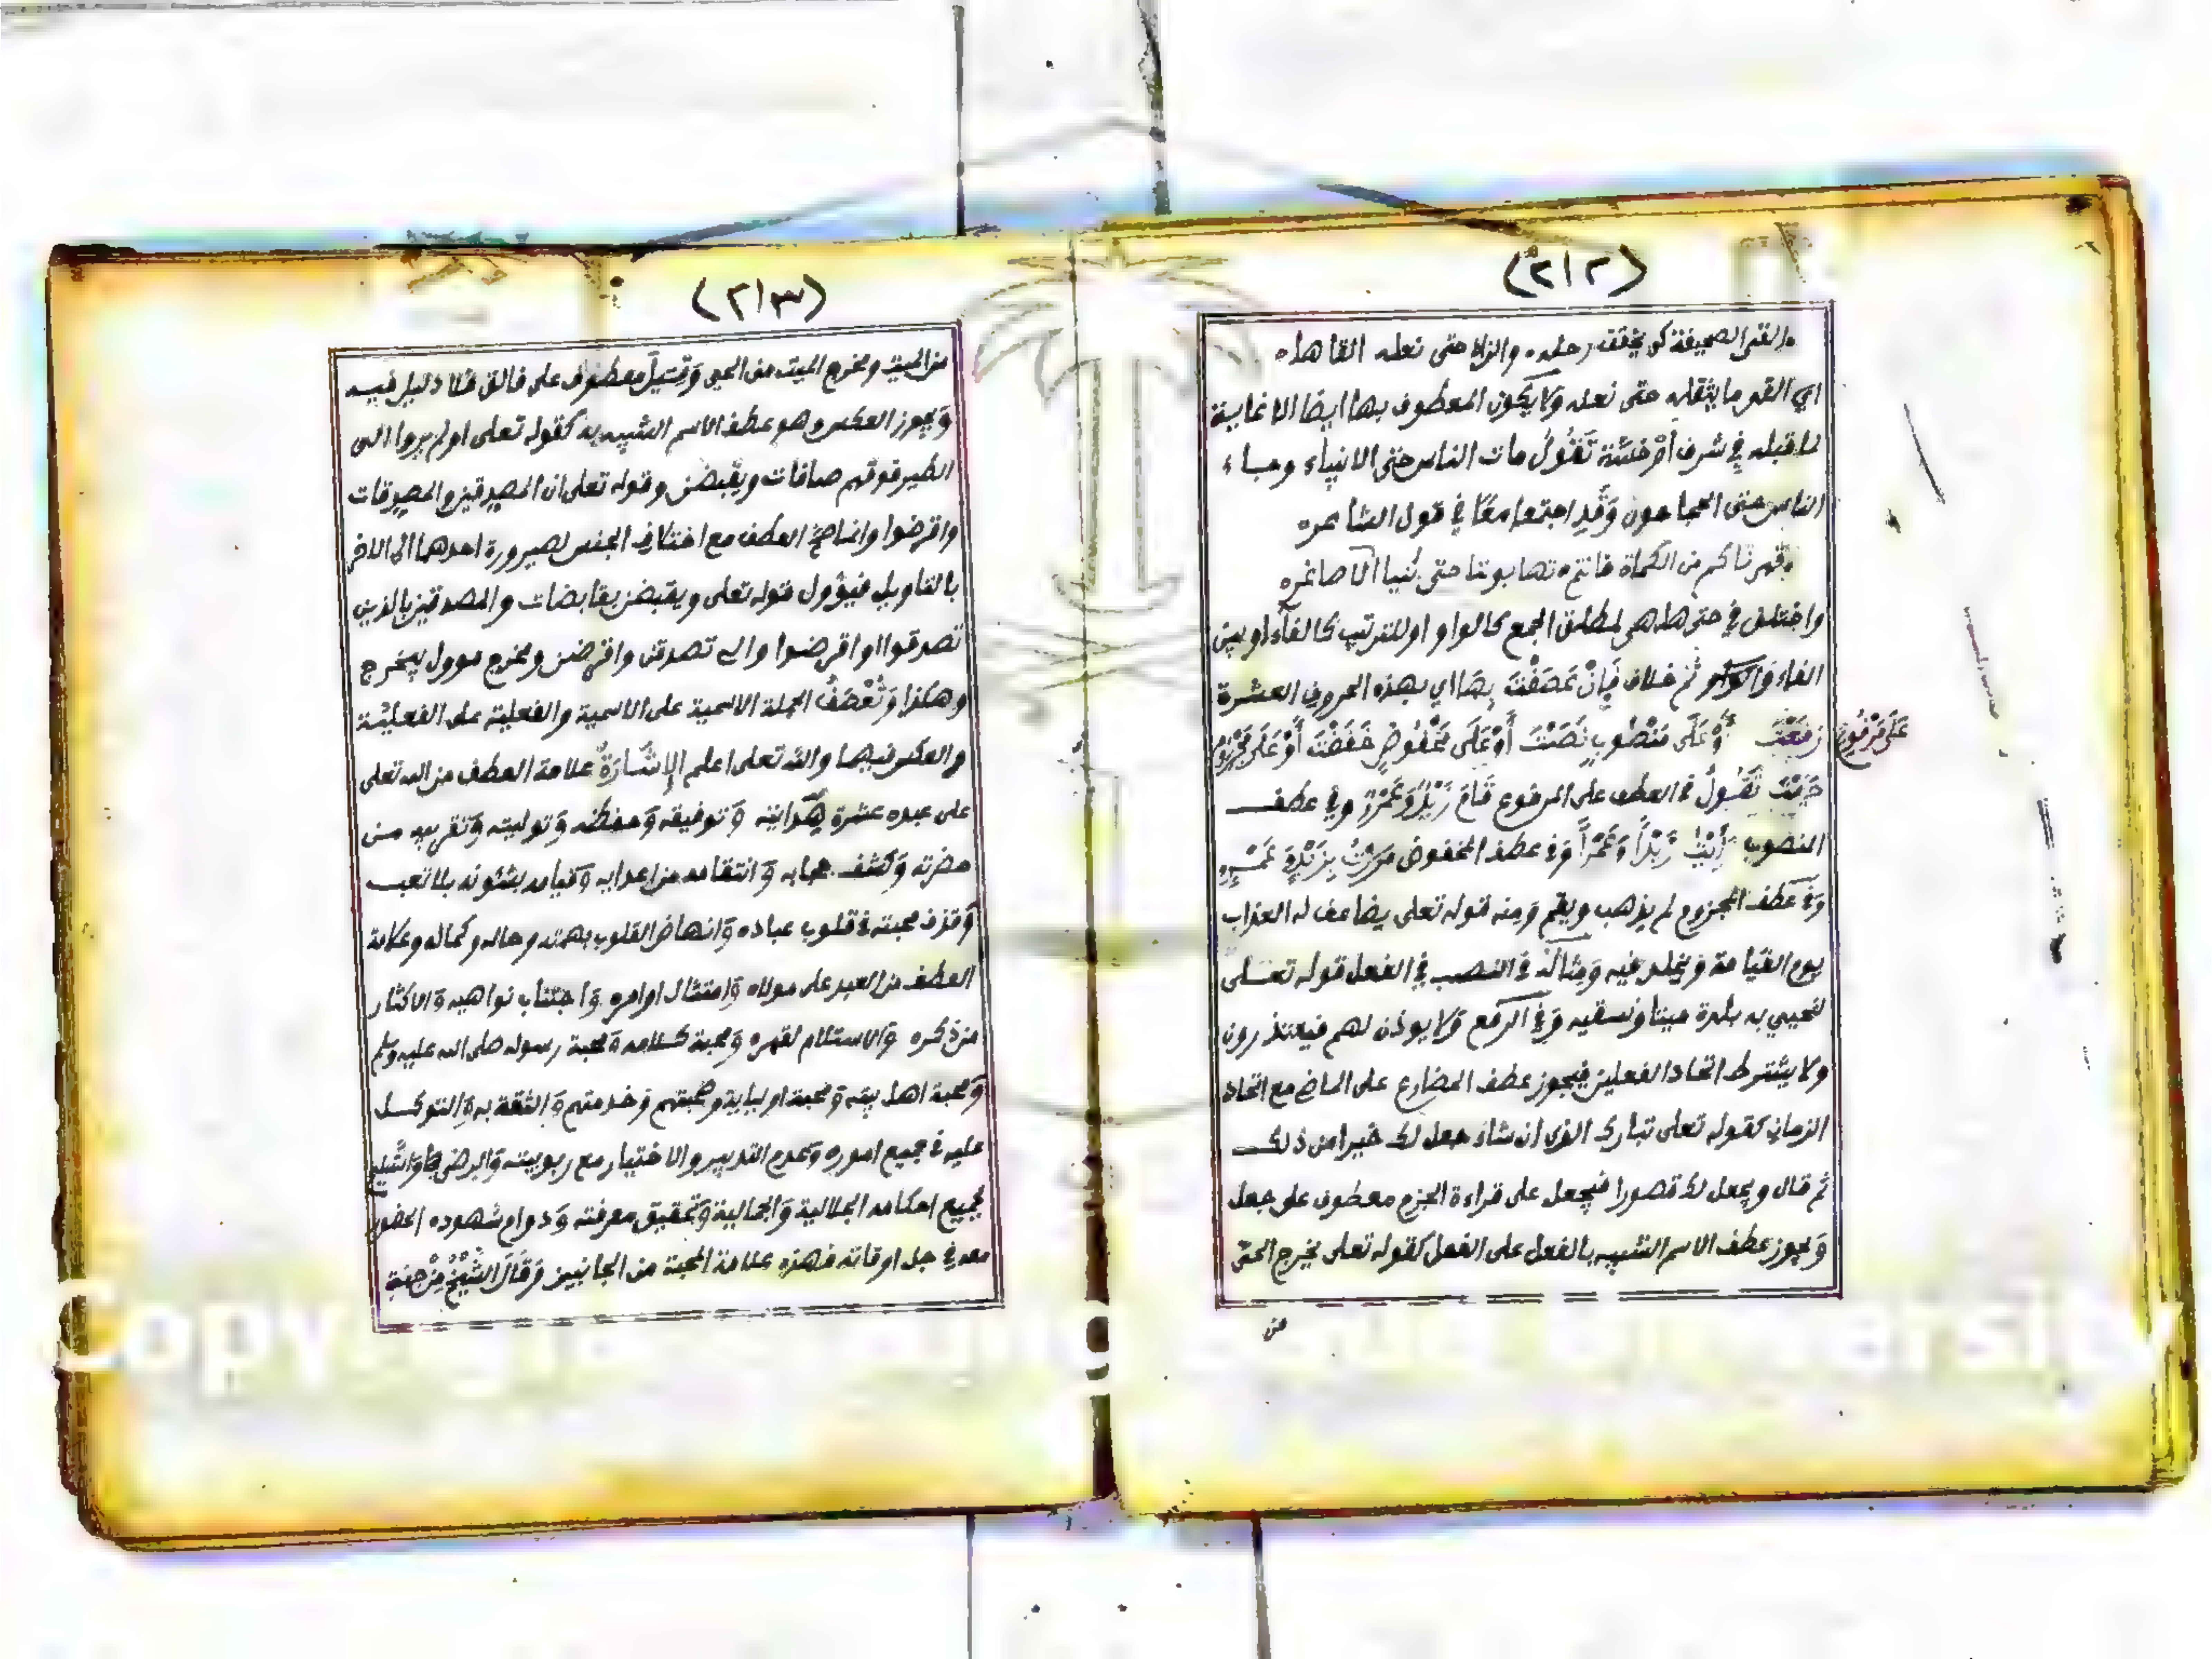 (٢١٢)
القى الصحيفة كي يخفف رحله والزاد حتى نعله القاها
اي القى ما يثقله حتى نعله ولا يكون المعطوف بها ايضا الا غاية
لما قبله في شرف أو خسة تقول مات الناس حتى الانبياء وجاء
الناس حتى الحجامون وقد اجتمعا معًا في قول الشاعر
قهرناكم حتى الكماة فانتم تهابوننا حتى بنينا الاصاغر
واختلف في حتى هل هي لمطلق الجمع كالواو او للترتيب كالفاء او بين
الفاء و ثم خلاف فَإِنْ عَطَفْتَ بِهَا اي بهذه الحروف العشرة
عَلَى مَرْفُوعٍ
رَفَعْتَ أَوْ عَلَى مَنْصُوبٍ نَصَبْتَ أَوْ عَلَى مَخْفُوضٍ خَفَضْتَ أَوْ عَلَى مَجْزُومٍ
جَزَمْتَ تَقُولُ في العطف على المرفوع قَامَ زَيْدٌ وَعَمْرٌو وفي عطف
المنصوب رَأَيْتُ زَيْدًا وَعَمْرًا وفي عطف المخفوض مَرَرْتُ بِزَيْدٍ وَعَمْرٍو
وفي عطف المجزوم لم يذهب ويقم ومنه قوله تعلى يضاعف له العذاب
يوم القيامة ويخلد فيه ومثاله في النصب في الفعل قوله تعلى
لنحيي به بلدة ميتا ونسقيه وفي الرفع ولا يوذن لهم فيعتذرون
ولا يشترط اتحاد الفعلين فيجوز عطف المضارع على الماضي مع اتحاد
الزمان كقوله تعلى تبارك الذي ان شاء جعل لك خيرا من ذلك
ثم قال ويجعل لك قصورا فيجعل على قراءة الجزم معطوف على جعل
ويجوز عطف الاسم الشبيه بالفعل على الفعل كقوله تعلى يخرج الحي
من
(٢١٣)
من الميت ومخرج الميت من الحي وقيل معطوف على فالق فلا دليل فيه
ويجوز العكس وهو عطف الاسم الشبيه به كقوله تعلى اولم يروا الى
الطير فوقهم صافات ويقبضن وقوله تعلى ان المصدقين والمصدقات
واقرضوا وانما صح العطف مع اختلاف الجنس لصيرورة احدهما الى الاخر
بالتاويل فيؤول قوله تعلى ويقبضن بقابضات والمصدقين بالذين
تصدقوا واقرضوا تصدقن واقرضن ومخرج موول بيخرج
وهكذا وَتُعْطَفُ الجملة الاسمية على الاسمية والفعلية على الفعلية
والعكس فيهما والله تعلى اعلم الإِشَارَةُ علامة العطف من الله تعلى
على عبده عشرة هدايته وتوفيقه وحفظه وتوليته وتقريبه من
حضرته وكشف حجابه وانتقامه من اعدايه وقيامه بشئونه بلا تعب
وقذف محبته في قلوب عباده وانهاض القلوب بهمته وحاله وكماله وعلامة
العطف من العبد على مولاه وامتثال اوامره واجتناب نواهيه والاكثار
من ذكره والاستلام لقهره ومحبة كلامه ومحبة رسوله صلى الله عليه وسلم
ومحبة اهل بيته ومحبة اوليايه وصحبتهم وخدمتهم والثقة به والتوكل
عليه في جميع اموره وعدم التدبير والاختيار مع ربوبيته والرضى
بجميع احكامه الجلالية والجمالية وتحقيق معرفته ودوام شهوده الحضور
معه في جل اوقاته فهذه علامة المحبة من الجانبين وَقَالَ الشَّيْخُ